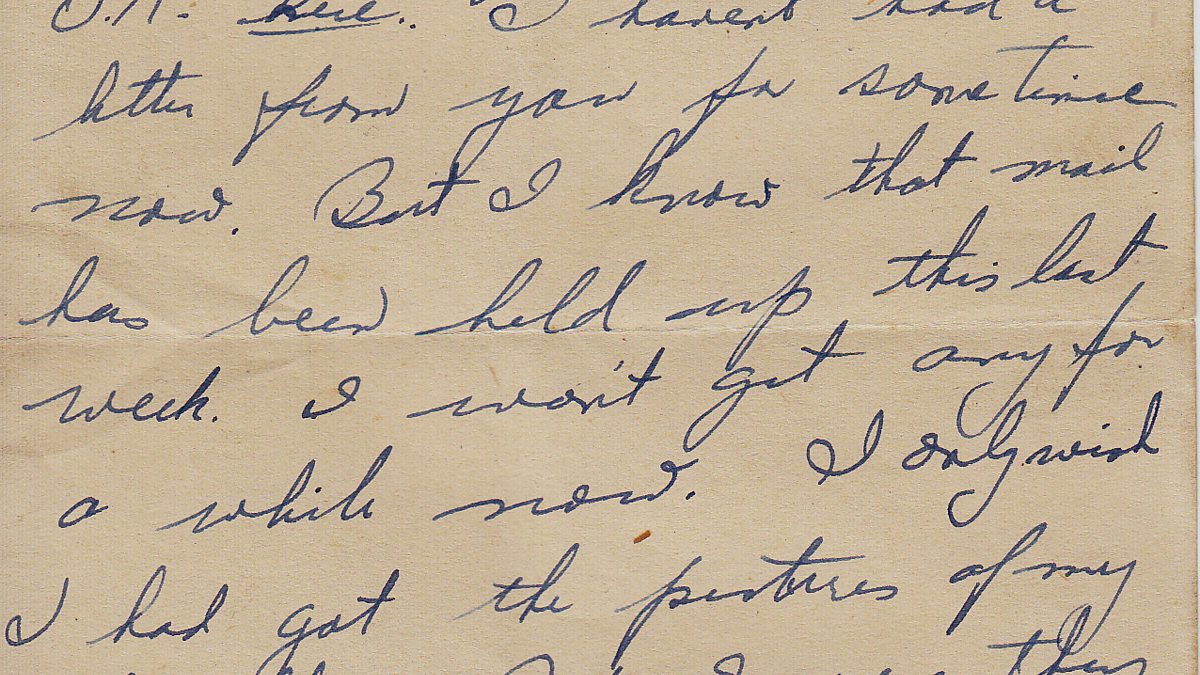 I haven't had a
letter from you for sometime
now. But I know that mail
has been held up this last
week. I won't get any for
a while now. I only wish
I had got the pictures of my